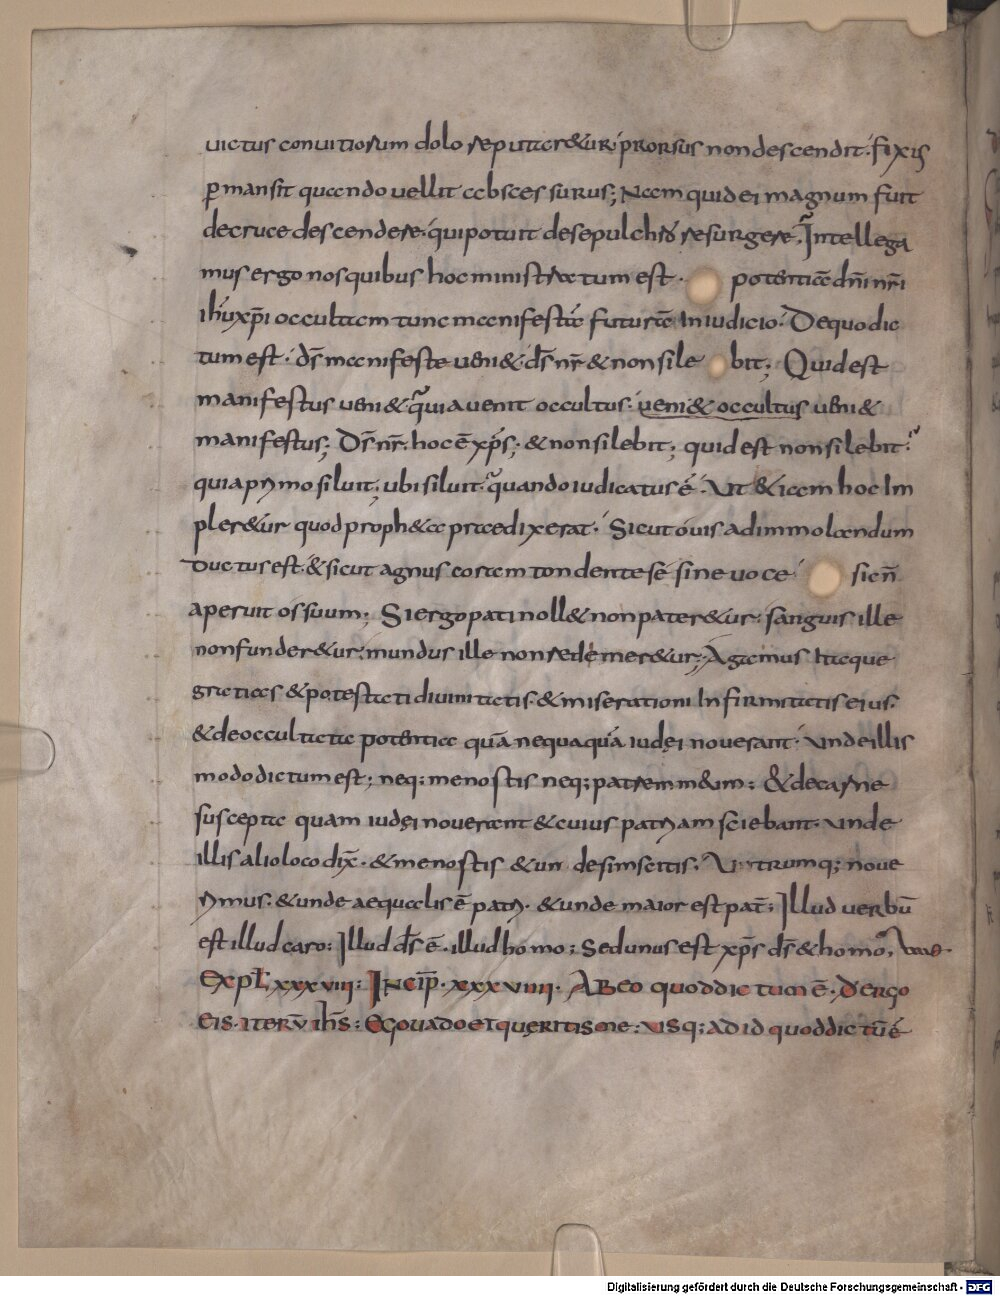 uictus conuitiorum dolo reputaretur; prorsus non descendit. fixus
p̱mansit quando uellit abscessurus; Nam quid ei magnum fuit
de cruce descendere. qui potuit de sepulchro resurgere. Intellega
mus ergo nos quibus hoc ministratum est. potentiā dn̄i nr̄i
ihū xp̄i occultam tunc manifestā futurā In iudicio. De quo dic
tum est. ds̄ manifeste ueni& ds̄ nr̄ & non sile bit; Quid est
manifestus ueni& quia uenit occultus. ueni& occultus ueni&
manifestus; Ds̄ nr̄. hoc ē xp̄s. & non silebit; quid est non silebit.
quia primo siluit; ubi siluit. quando iudicatus ē. Ut &iam hoc Im
pler&ur quod proph&a praedixerat. Sicut ouis ad immolandum
ductus est. & sicut agnus coram tondente sē sine uoce sic n̄
aperuit os suum. Si ergo pati noll& non pater&ur. sanguis ille
non funder&ur. mundus ille non redemer&ur; Agamus itaque
gratias & potestati diuinitatis. & miserationi Infirmitatis eius.
& de occultata potentia quā nequaquā iudei nouerant. Unde illis
modo dictum est; neq; me nostis neq; patrem m&um; & de carne
suscepta quam iudęi nouerant & cuius patriam sciebant. unde
illis alio loco dix̄. & me nostis & un de sim scitis. Utrumq; noue
rimus. & unde aequalis ē patri. & unde maior est pat̄; Illud uerbū
est illud caro; Illud ds̄ ē. illud homo; Sed unus est xp̄s ds̄ & homo,
Expl̄. xxxviii; Incip̄. xxxviiii. Ab eo quod dictum ē. D̄ ergo
eis. iterū ih̄s; Ego uado et quęritis me; usq; ad id quod dictū ē
Digitalisierung gefördert durch die Deutsche Forschungsgemeinschaft - DFG